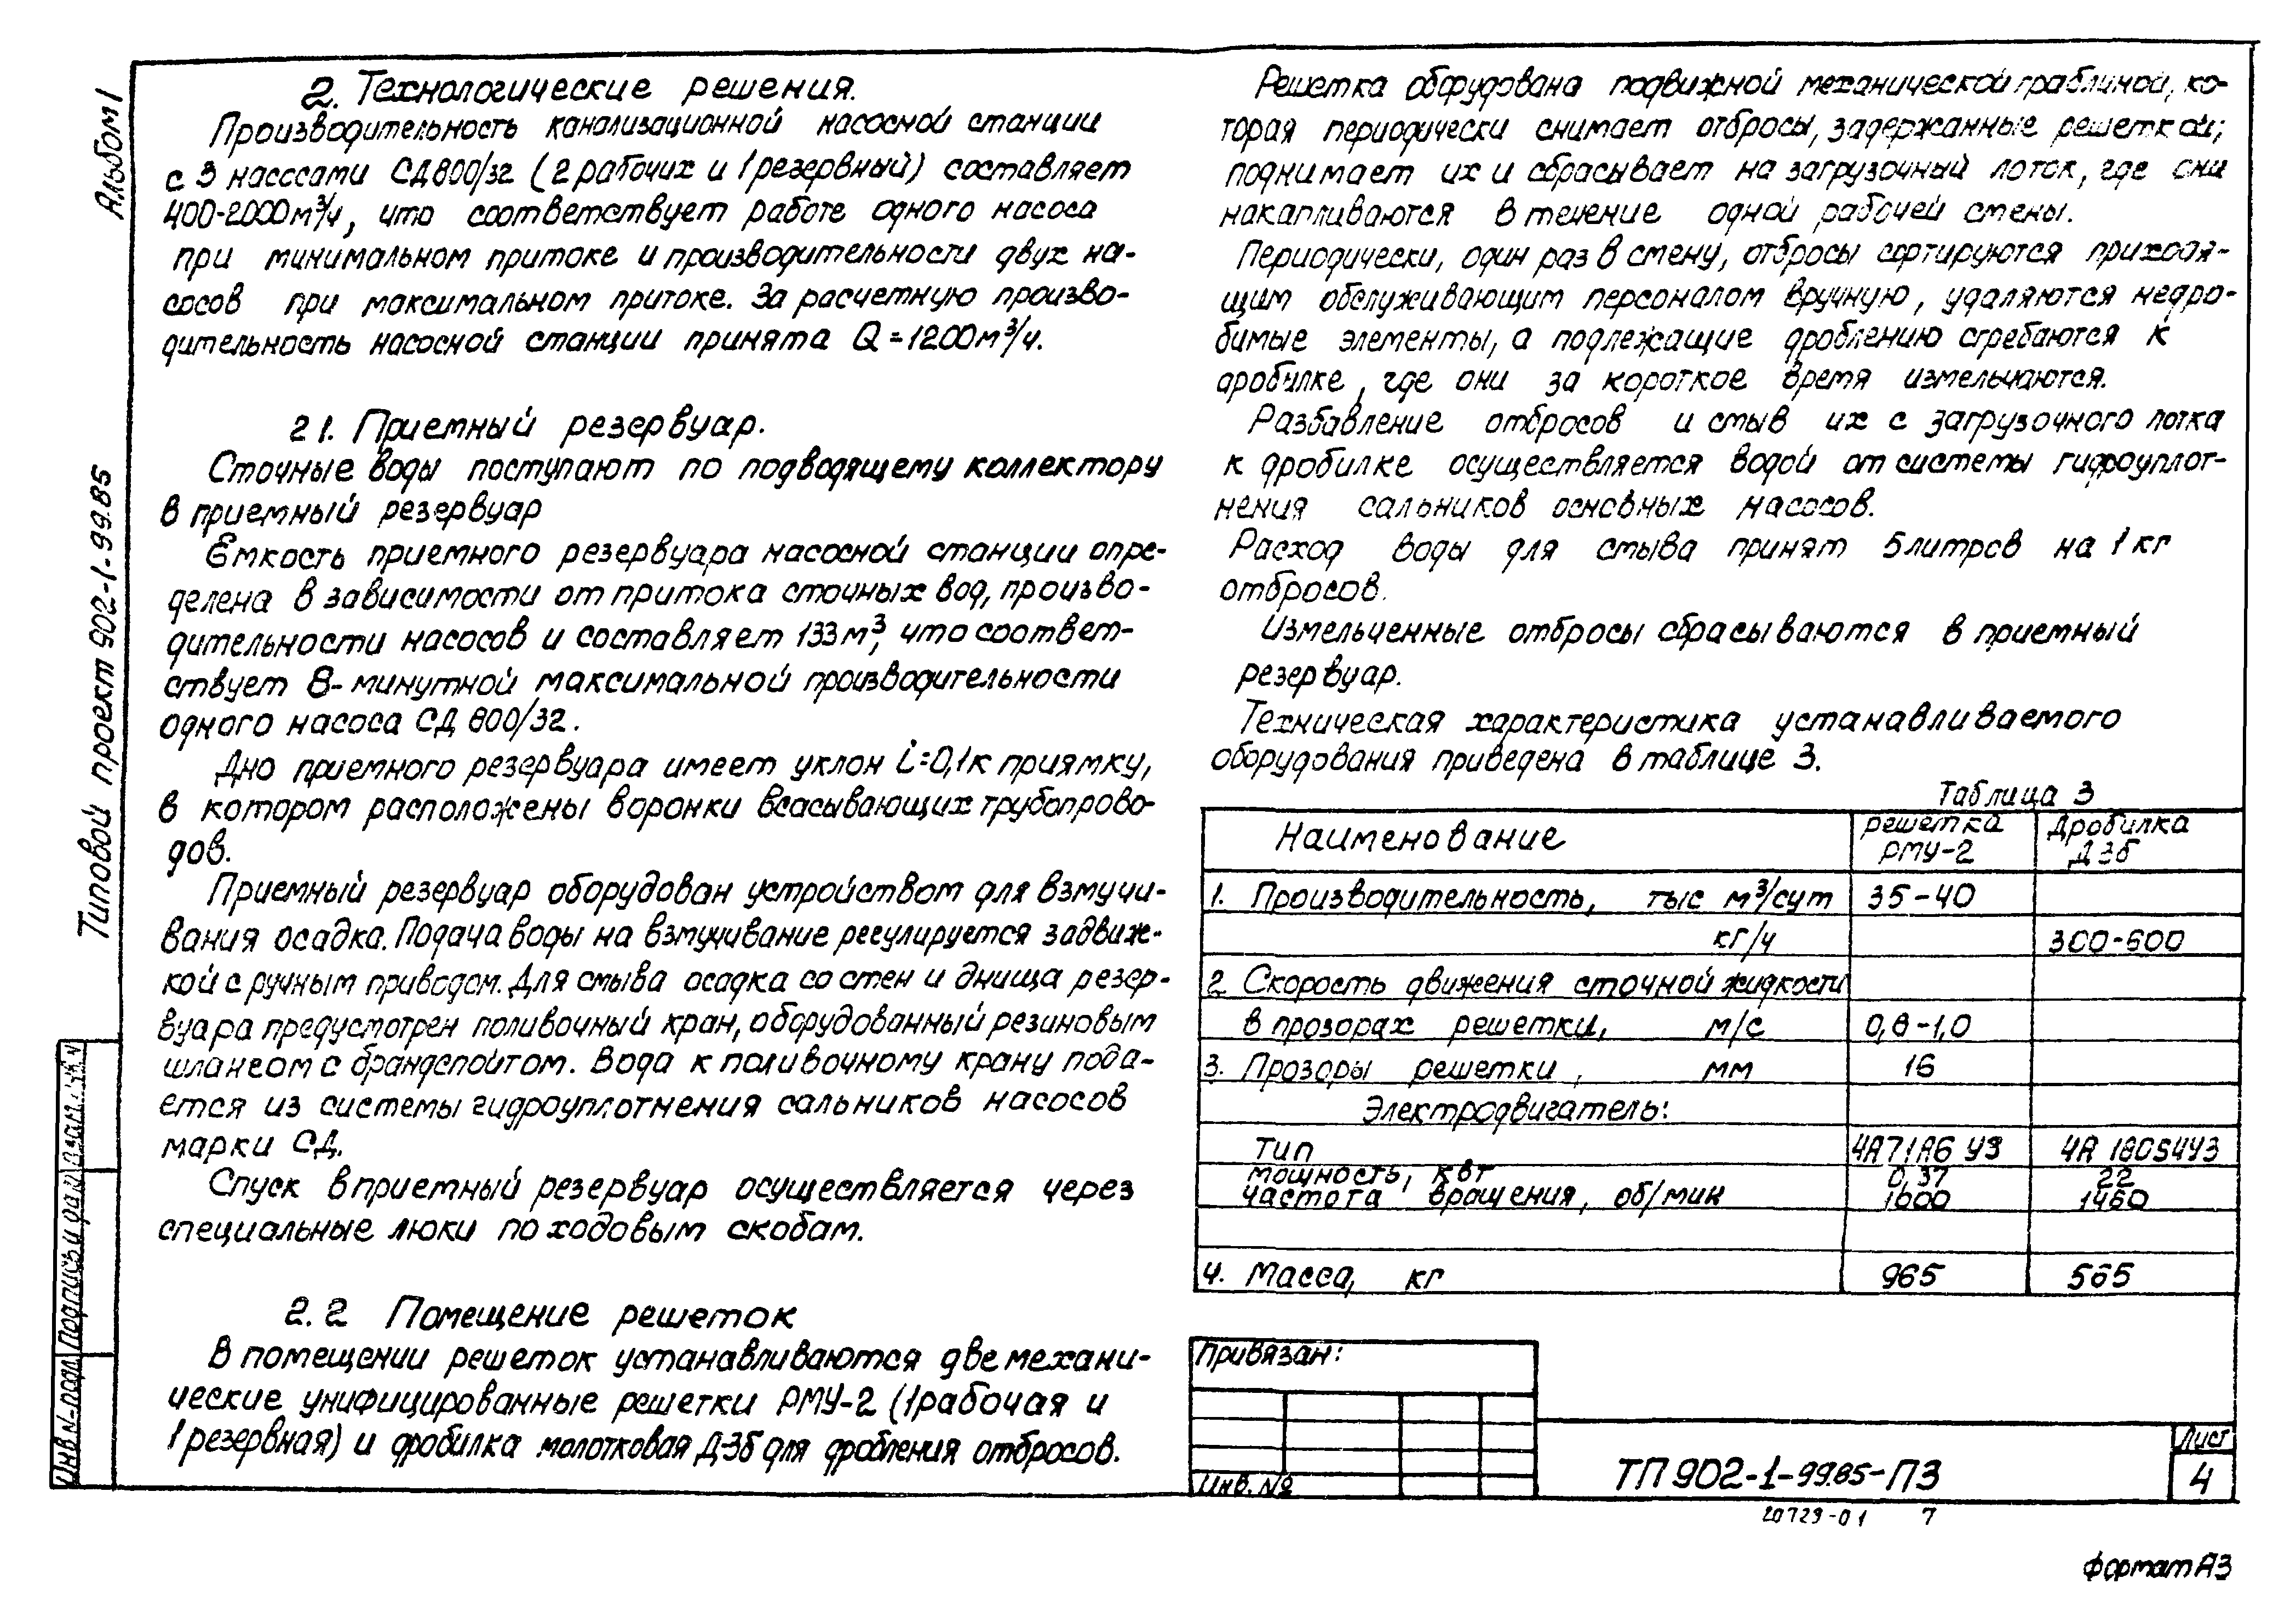 Альбом 1
Типовой проект 902-1-99.85
2. Технологические решения.
Производительность канализационной насосной станции
с 3 насосами СД 800/32 (2 рабочих и 1 резервный) составляет
400-2000 м³/ч, что соответствует работе одного насоса
при минимальном притоке и производительности двух на-
сосов при максимальном притоке. За расчетную произво-
дительность насосной станции принята Q=1200 м³/ч.
2.1. Приемный резервуар.
Сточные воды поступают по подводящему коллектору
в приемный резервуар
Емкость приемного резервуара насосной станции опре-
делена в зависимости от притока сточных вод, произво-
дительности насосов и составляет 133 м³, что соответ-
ствует 8-минутной максимальной производительности
одного насоса СД 800/32.
Дно приемного резервуара имеет уклон i=0,1 к приямку,
в котором расположены воронки всасывающих трубопрово-
дов.
Приемный резервуар оборудован устройством для взмучи-
вания осадка. Подача воды на взмучивание регулируется задвиж-
кой с ручным приводом. Для смыва осадка со стен и днища резер-
вуара предусмотрен поливочный кран, оборудованный резиновым
шлангом с брандспойтом. Вода к поливочному крану пода-
ется из системы гидроуплотнения сальников насосов
марки СД.
Спуск в приемный резервуар осуществляется через
специальные люки по ходовым скобам.
2.2 Помещение решеток
В помещении решеток устанавливаются две механи-
ческие унифицированные решетки РМУ-2 (1 рабочая и
1 резервная) и дробилка молотковая Д-3б для дробления отбросов.
Решетка оборудована подвижной механической граблиной, ко-
торая периодически снимает отбросы, задержанные решеткой,
поднимает их и сбрасывает на загрузочный лоток, где они
накапливаются в течение одной рабочей смены.
Периодически, один раз в смену, отбросы сортируются приходя-
щим обслуживающим персоналом вручную, удаляются недро-
бимые элементы, а подлежащие дроблению сгребаются к
дробилке, где они за короткое время измельчаются.
Разбавление отбросов и смыв их с загрузочного лотка
к дробилке осуществляется водой от системы гидроуплот-
нения сальников основных насосов.
Расход воды для смыва принят 5 литров на 1 кг
отбросов.
Измельченные отбросы сбрасываются в приемный
резервуар.
Техническая характеристика устанавливаемого
оборудования приведена в таблице 3.
Таблица 3
Наименование решетка РМУ-2 Дробилка Д 3б
1. Производительность, тыс м³/сут 35-40
кг/ч 300-600
2 Скорость движения сточной жидкости
в прозорах решетки, м/с 0,8-1,0
3. Прозоры решетки, мм 16
Электродвигатель:
тип 4А71А6 У3 4А 180S4У3
мощность, квт 0,37 22
частота вращения, об/мин 1000 1460
4. Масса, кг 965 565
Привязан:
Инв. №
ТП 902-1-99.85-ПЗ
Лист
4
20729-01 7
Формат А3
Инв.N-подл. Подпись и дата